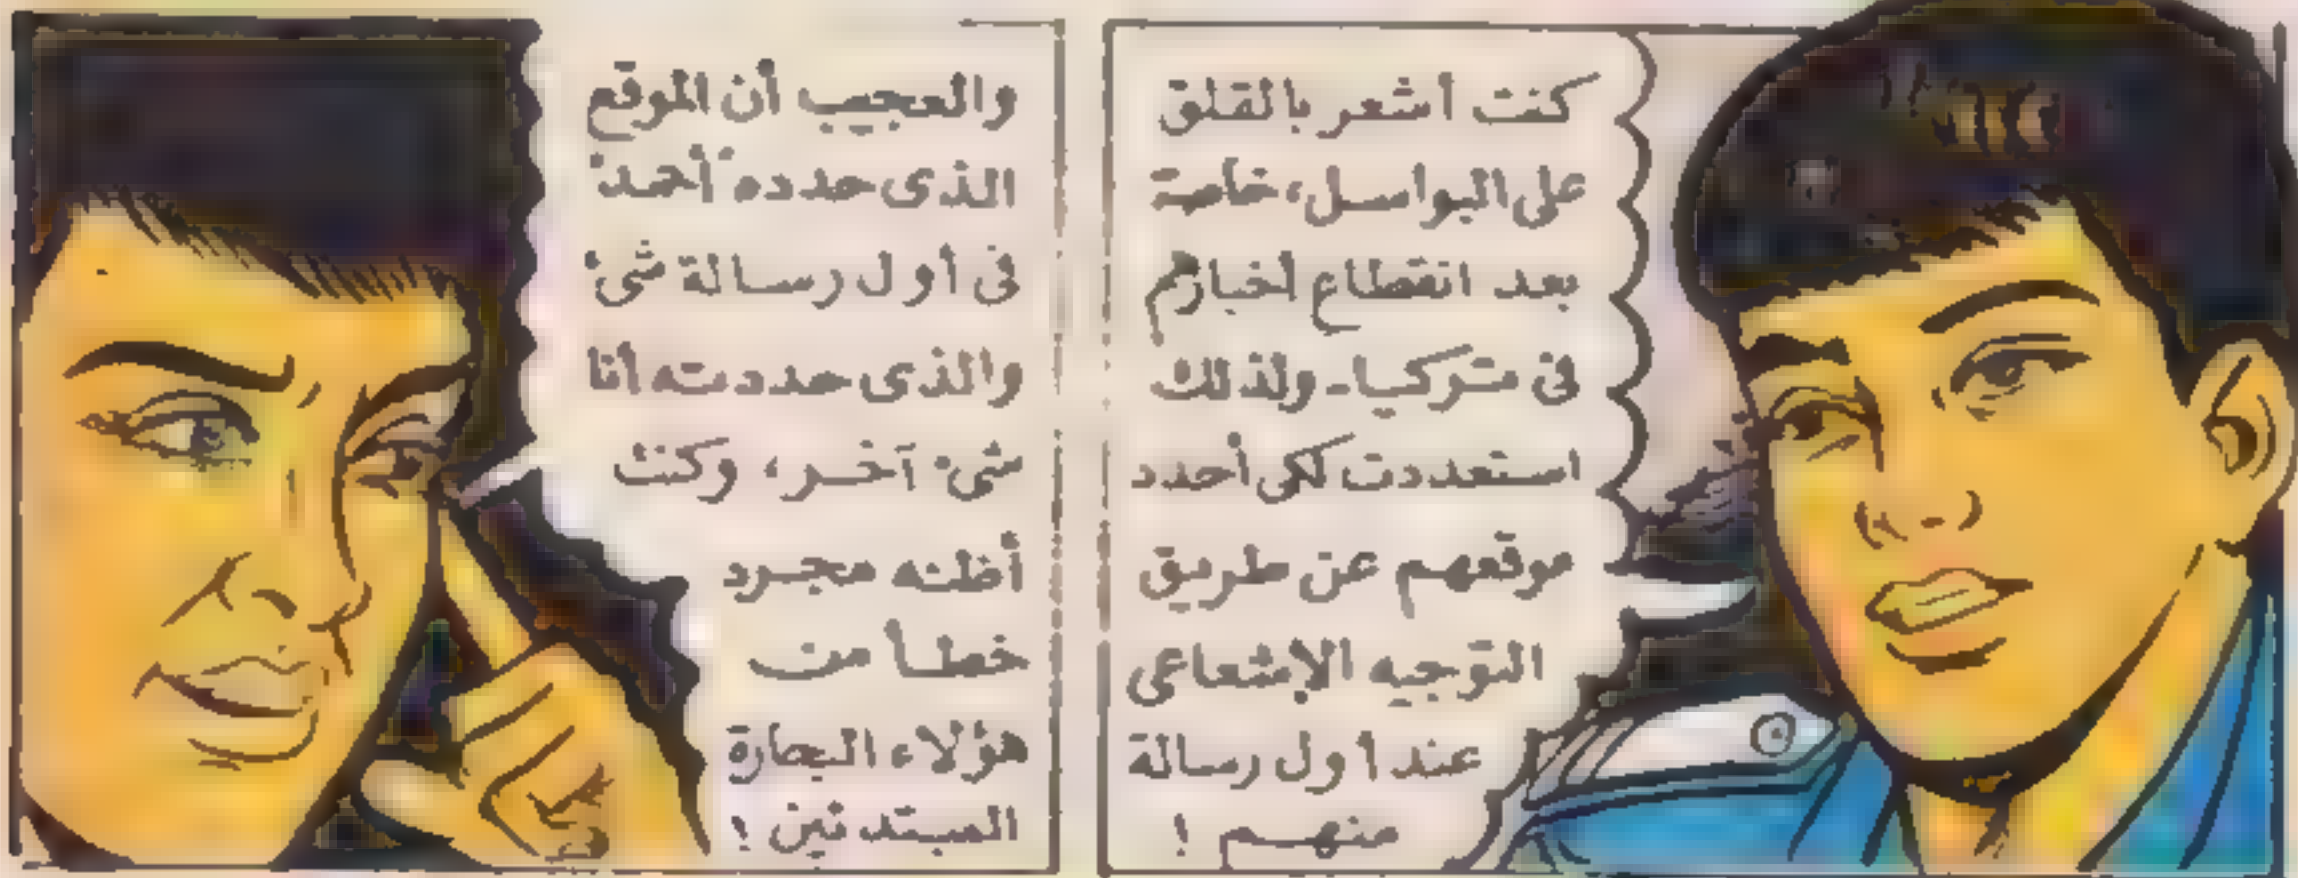 كنت أشعر بالقلق
على البواسل، خاصة
بعد انقطاع أخبارهم
فى تركيا.. ولذلك
استعددت لكى أحدد
موقعهم عن طريق
التوجيه الإشعاعى
عند أول رسالة
منهم !
والعجيب أن الموقع
الذى حدده "أحمد"
فى أول رسالة شىء
والذى حددته أنا
شىء آخر، وكنت
أظنه مجرد
خطأ من
هؤلاء البحارة
المبتدئين !